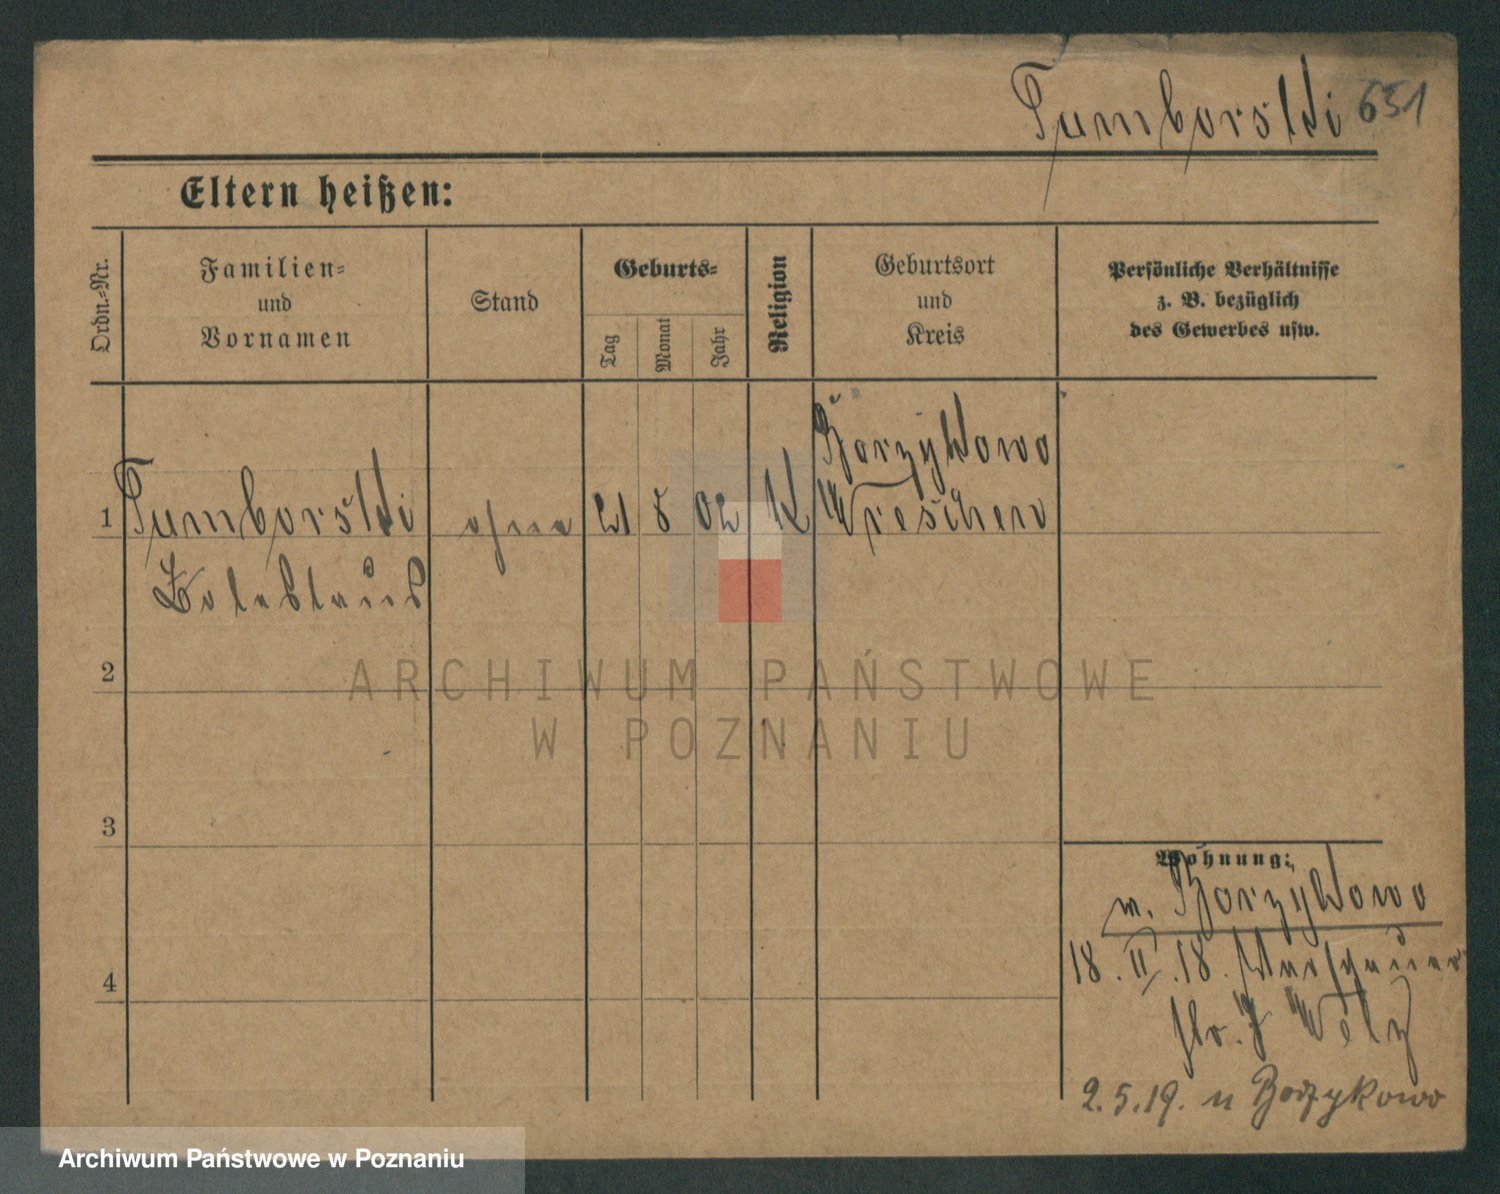 Tumborski 651
Eltern heißen:
Ordn.=Nr.
Familien=
und
Vornamen
Stand
Geburts=
Tag
Monat
Jahr
Religion
Geburtsort
und
Kreis
Persönliche Verhältnisse
z. B. bezüglich
des Gewerbes usw.
1 Tumborski ohne 21 8 02 K Borzykowo
Wreschen
2
3
4
Wohnung:
n. Borzykowo
18.II.18. Warschauer
str. 9
2.5.19. n Borzykowo
ARCHIWUM PAŃSTWOWE
W POZNANIU
Archiwum Państwowe w Poznaniu